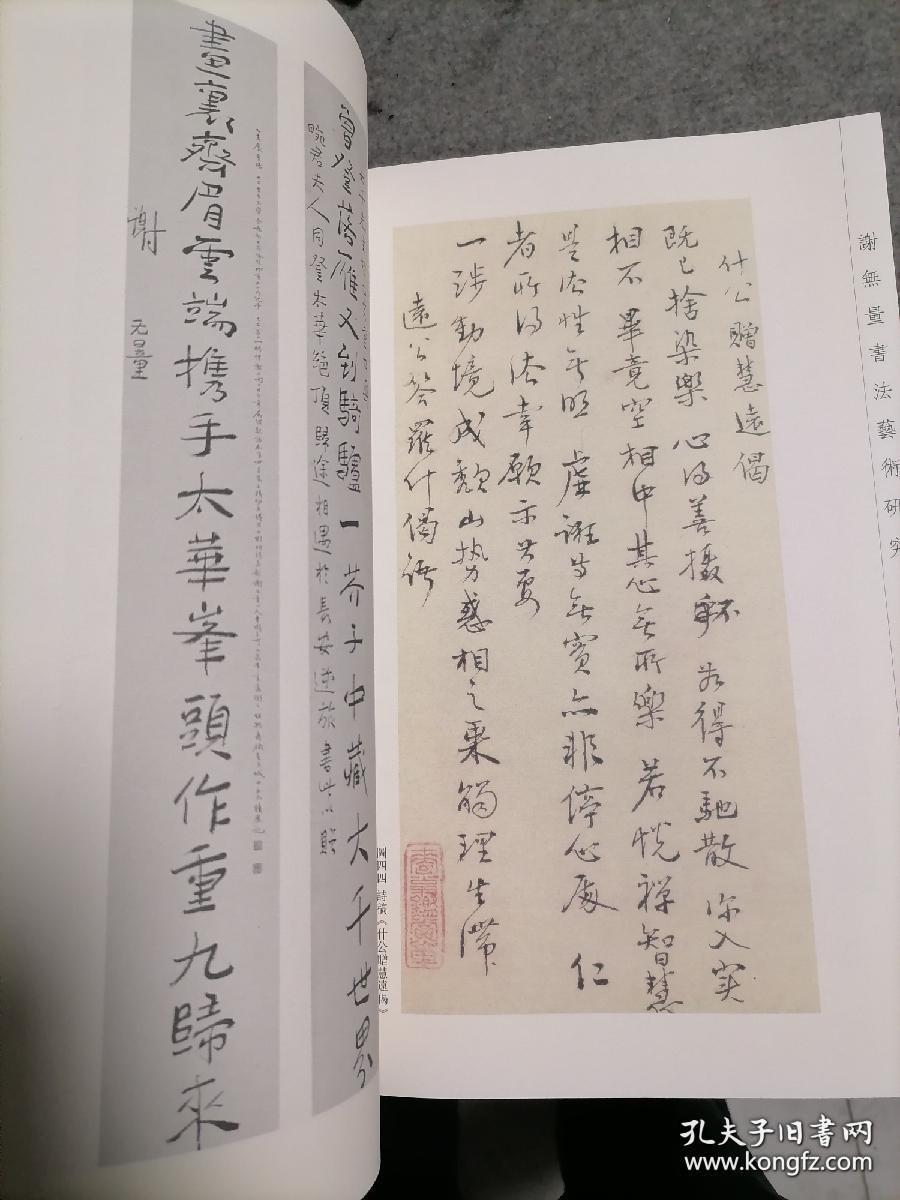 謝無量書法藝術研究
什公贈慧遠偈
既已捨染樂 心得善攝不 若得不馳散 深入實
相不 畢竟空相中 其心無所樂 若悦禪智慧
是法性無照 虛誑等無實 亦非停心處 仁
者所得法 幸願示其要
遠公答羅什偈語
一涉動境 成頹山勢 惑相之乘 觸理生滯
圖四四 詩稿《什公贈慧遠偈》
曾登落雁又到騎驢一芥子中藏大千世界
晼君夫人同登太華絶頂歸途相遇於長安逆旅書此以貽
畫裏齊眉雲端攜手太華峯頭作重九歸來
謝
无量
孔夫子旧书网
www.kongfz.com